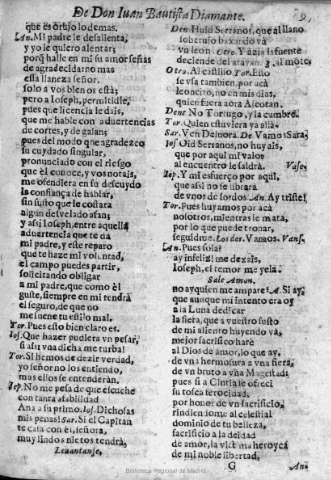 De Don Iuan Bautista Diamante. 9
que es orujo lo demas.
An. Mi padre le desalienta,
y yo le quiero alentar;
porq̃ halle en mi su amor señas
de agradecidar no mas
essa llaneza señor.
solo a vos bien os està;
pero a Ioseph, permitidle,
pues que licencia le dais,
que me hable con aduertencias
de cortes, y de galan;
pues del modo que agradezco
su cuydado singular,
pronunciado con el riesgo
que èl conoce, y vos notais,
me ofendiera en su descuydo
la confiança de hablar,
sin susto que le costara
algun desvelado afan;
y assi Ioseph, entre aquella
aduertencia que te dà
mi padre, y este reparo
que te haze mi voluntad,
el campo puedes partir,
solicitando obligar
a mi padre, que como èl
guste, siempre en mi tendrà
el seguro, de que no
me suene tu estilo mal.
Tor. Pues esto bien claro es.
Ios. Que hazer pudiera vn pesar,
si assi vna dicha me turba!
Tor. Si hemos de dezir verdad,
yo señor no los entiendo,
mas ellos se entenderàn.
Iep. No me pesa de que escuche
con tanta afabilidad
Ana a su primo. Ios. Dichosas
mis penas! Sar. Si el Capitan
te casa con èl, señora,
muy lindos nietos tendrà,
Leuantanse.
Den. Huid Serranos, que al llano
vn leon. Otr. Y àzia la fuente
desciende del
Otro. Al castillo Tor. Esso
se vsa tambien, por acà
leoncito, no en mis dias,
quien fuera aora Ascotan.
Dent No Tortugo, y la cumbre.
Tor. Quien estuviera ya allà.
Sar. Ven Debora. De Vamos Sara.
Ios Old Serranos, no huyais,
que por aqui mi valor
al encuentro le saldrà. Vase.
Iep. Y mi esfuerço por aqui,
que assi no le librarà
de vno de los dos An. Ay triste!
Tor. Pues huyamos por acà
nosotros, mientras le mata,
por lo que puede tronar,
seguidme. Los dos. Vamos. Vans.
An. Pues sola!
ay infeliz! me dexais,
Ioseph, el temor me yela.
Sale Amon.
no ay quien me ampare! A. Si ay,
que aunque mi intento era oy
a la Luna dedicar
la fiera, que a vuestro susto
de mi aliento huyendo và;
mejor sacrificio harè
al Dios de amor, lo que ay,
de vna hermosura a vna fiera,
de vn bruto a vna Magestad;
pues si a Cintia le ofreci
su tosca ferocidad,
por honor de mi sacrificio,
rindiendome al celestial
dominio de tu belleza,
sacrificio a la deidad
de amor, la victima heroyca
de mi noble libertad,
G An.
Biblioteca Regional de Madrid